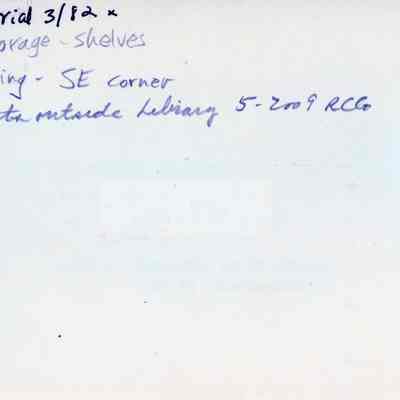 rial 3/82 x
orage - shelves
ing - SE corner
outside Library 5-2009 RCCo